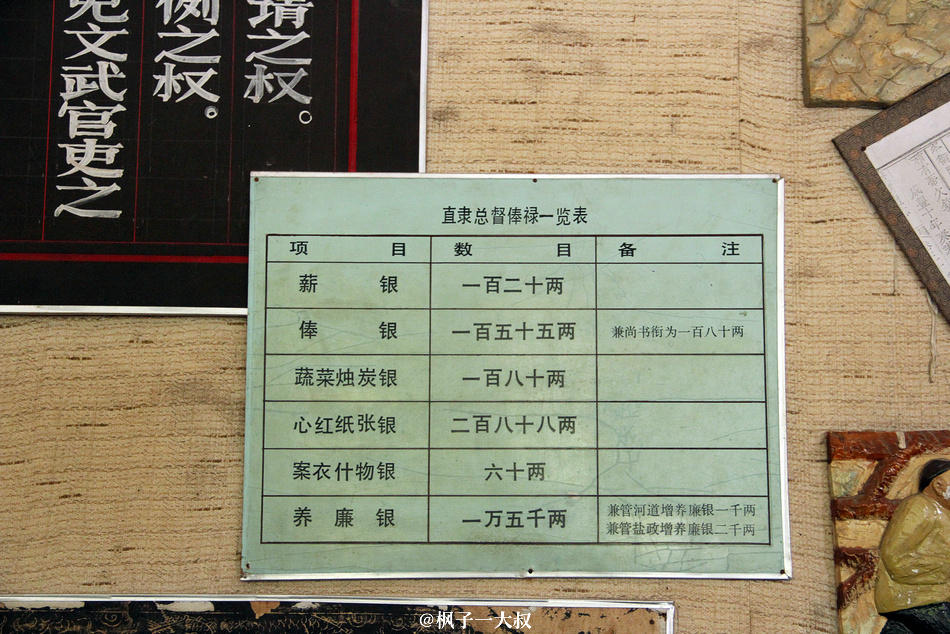 请之权。
例之权。
免文武官吏之
直隶总督俸禄一览表
项 目 数 目 备 注
薪 银 一百二十两
俸 银 一百五十五两 兼尚书衔为一百八十两
蔬菜烛炭银 一百八十两
心红纸张银 二百八十八两
案衣什物银 六十两
养 廉 银 一万五千两 兼管河道增养廉银一千两
兼管盐政增养廉银二千两
@枫子一大叔